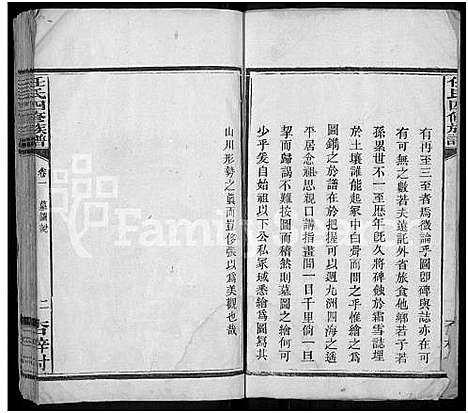 有再至三至者焉微論乎圖卽碑與誌亦在可
有無之數若夫遠託外省旅食他鄉若子若
孫累世不一至歷年旣久將碑蝕於霜雪誌埋
於土壤誰能起冢中白骨而問之乎惟繪之為
圖鐫之於譜在於把握可以週九洲四海之遙
平居念祖思宗口講指畫間一日千里倘一旦
挈而歸謁不難按圖而稽然則墓圖之繪何可
少乎爰自始祖以下公私冢域悉繪為圖寫其
山川形勢之眞而豈侈張以為美觀也哉
任氏四修族譜
卷一
墓圖說
二
任氏四修族譜
FamilySearch